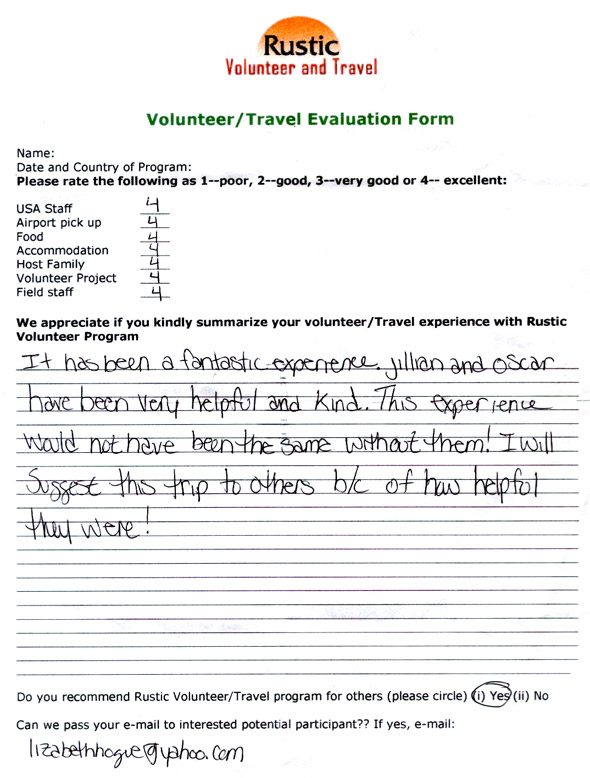 Rustic
Volunteer and Travel
Volunteer/Travel Evaluation Form
Name:
Date and Country of Program:
Please rate the following as 1--poor, 2--good, 3--very good or 4-- excellent:
USA Staff 4
Airport pick up 4
Food 4
Accommodation 4
Host Family 4
Volunteer Project 4
Field staff 4
We appreciate if you kindly summarize your volunteer/Travel experience with Rustic
Volunteer Program
It has been a fantastic experience. Jillian and Oscar
have been very helpful and kind. This experience
would not have been the same without them! I will
suggest this trip to others b/c of how helpful
they were!
Do you recommend Rustic Volunteer/Travel program for others (please circle) (i) Yes (ii) No
Can we pass your e-mail to interested potential participant?? If yes, e-mail:
lizabethhogue@yahoo.com